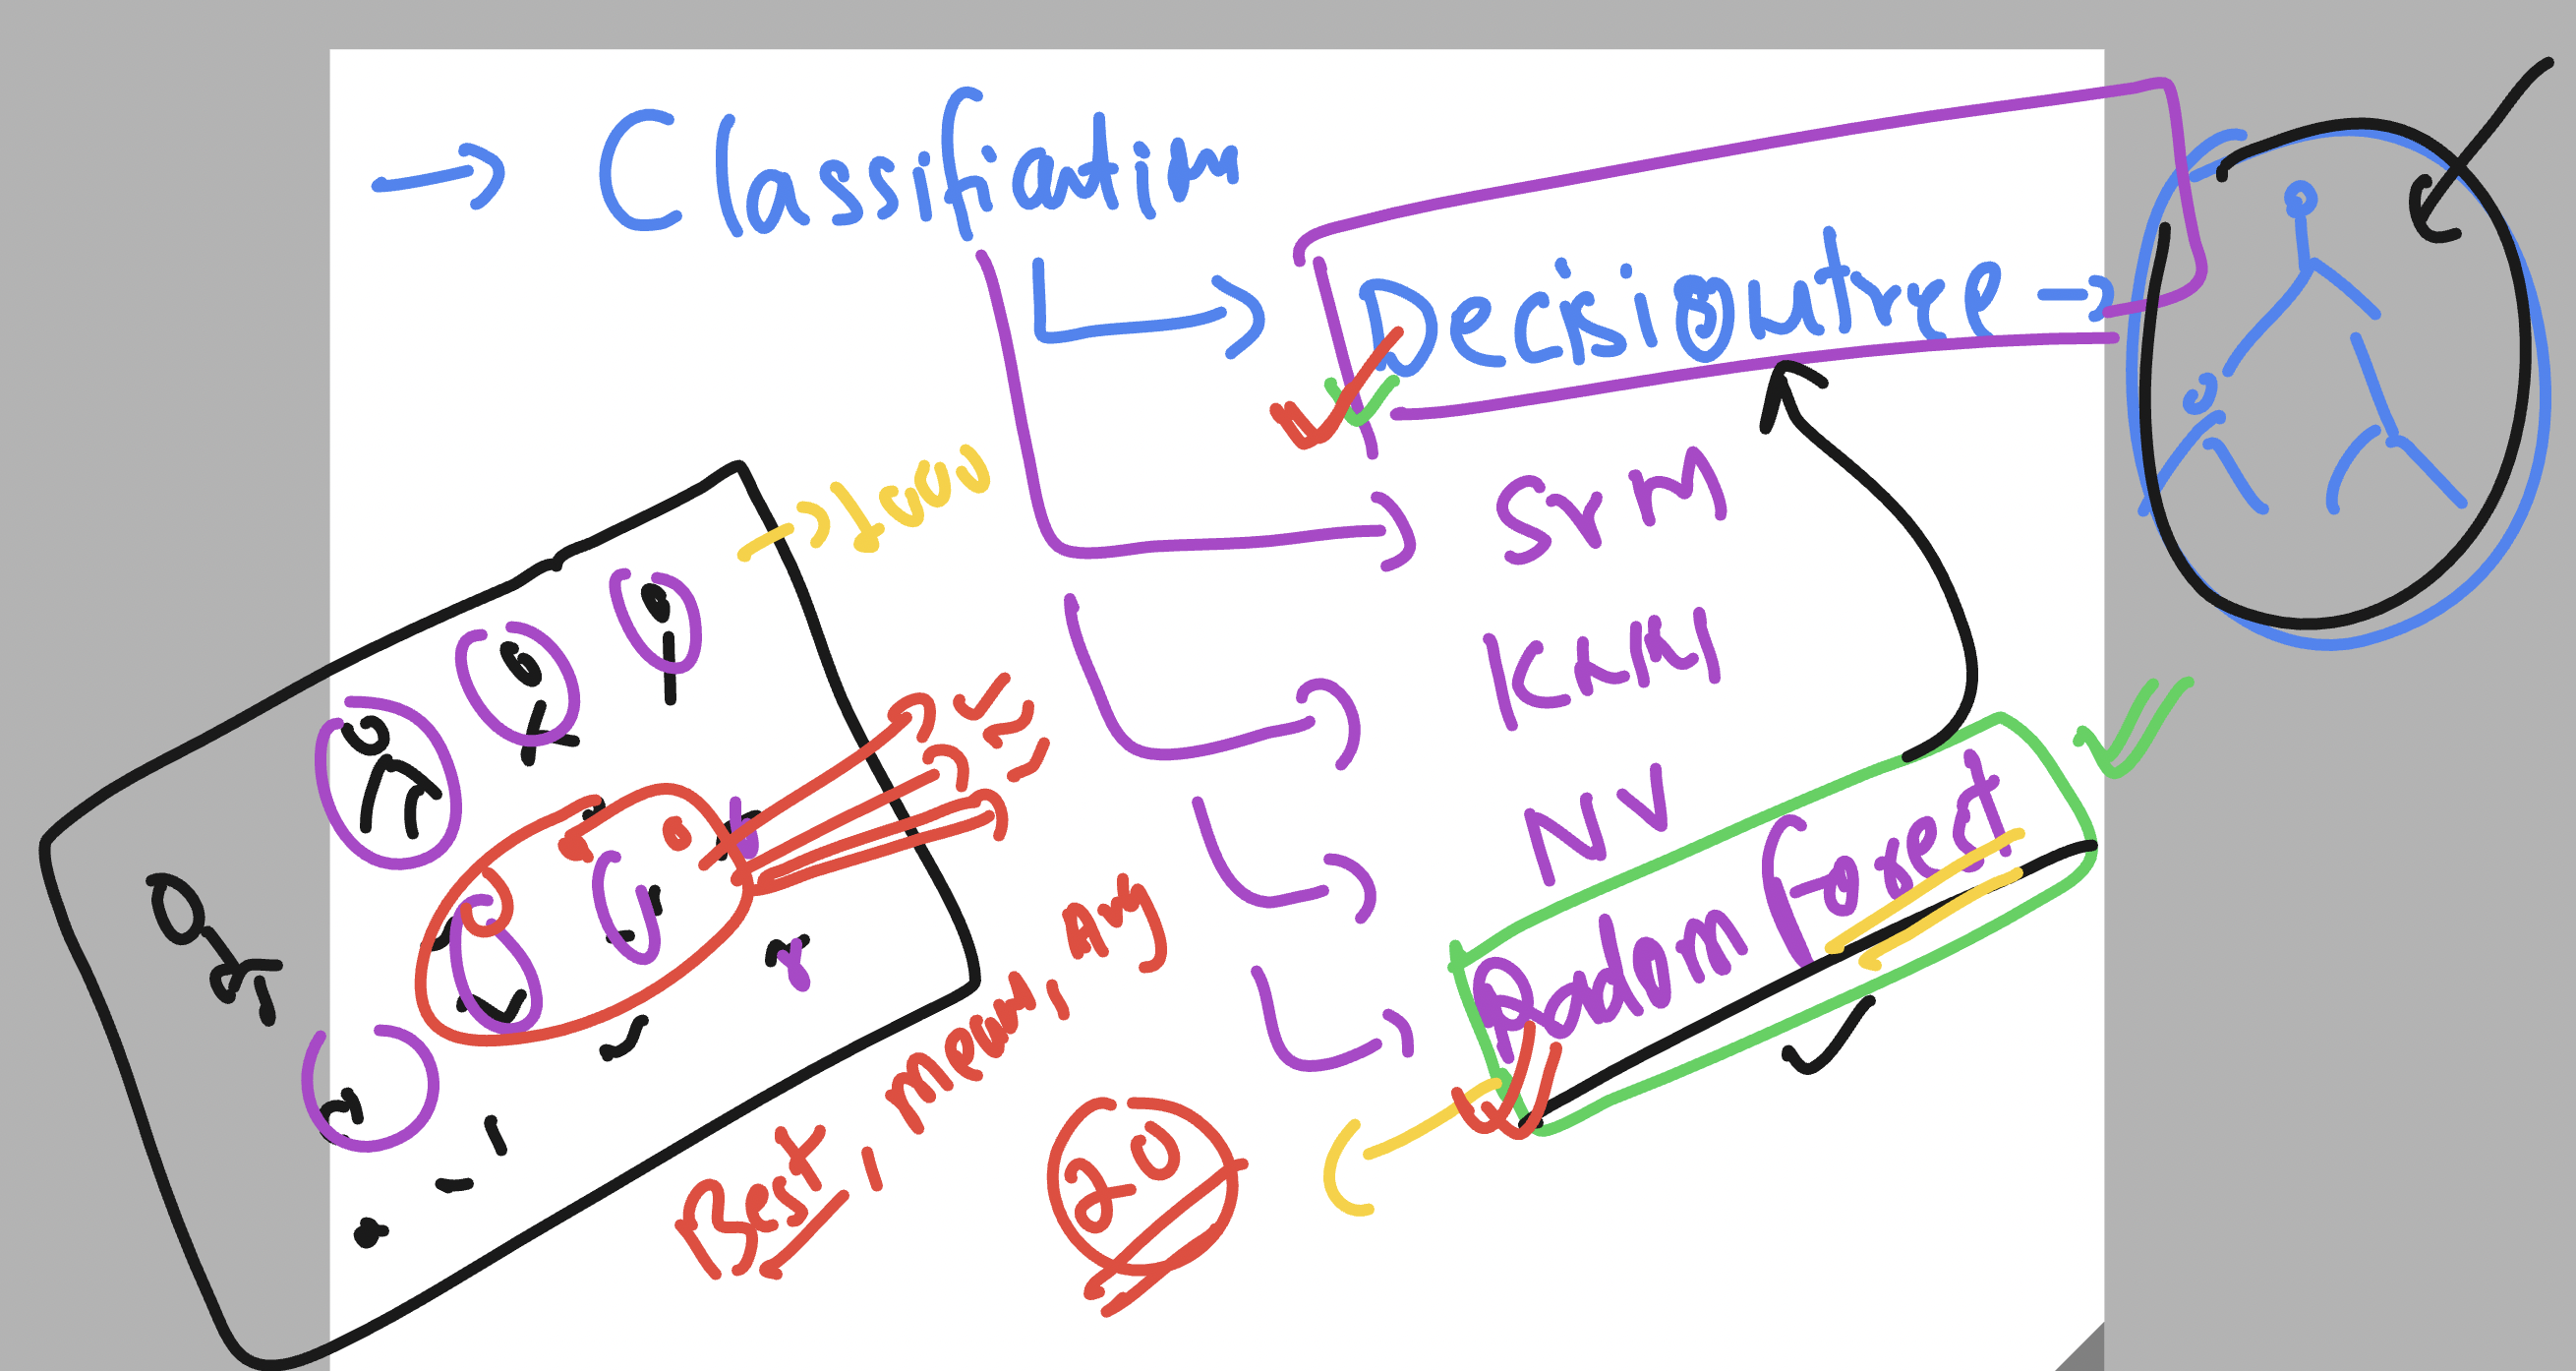 → Classification
Decisiontree →
→ 1000
SVM
KNN
NV
Radom Forest
Best, mean, Avg
20